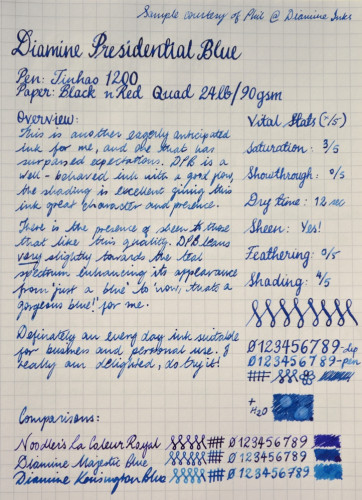 Sample courtesy of Phil @ Diamine Inks
Diamine Presidential Blue
Pen: Jinhao 1200
Paper: Black n Red Quad 24lb/90gsm
Overview:
This is another eagerly anticipated
ink for me, and one that has
surpassed expectations. DPB is a
well-behaved ink with a good flow,
the shading is excellent giving this
ink great character and presence.
There is the presence of sheen to those
that like this quality. DPB leans
very slightly towards the teal
spectrum enhancing its appearance
from 'just a blue' to 'wow, thats a
gorgeous blue!' for me.
Definately an every day ink suitable
for business and personal use. I
really am delighted, do buy it!
Vital Stats (-/5)
Saturation: 3/5
Showthrough: 0/5
Dry time: 12 sec
Sheen: Yes!
Feathering: 0/5
Shading: 4/5
0123456789-dip
0123456789-pen
+
H2O
Comparisons:
Noodler's La Coleur Royal 0123456789
Diamine Majestic Blue 0123456789
Diamine Kensington Blue 0123456789